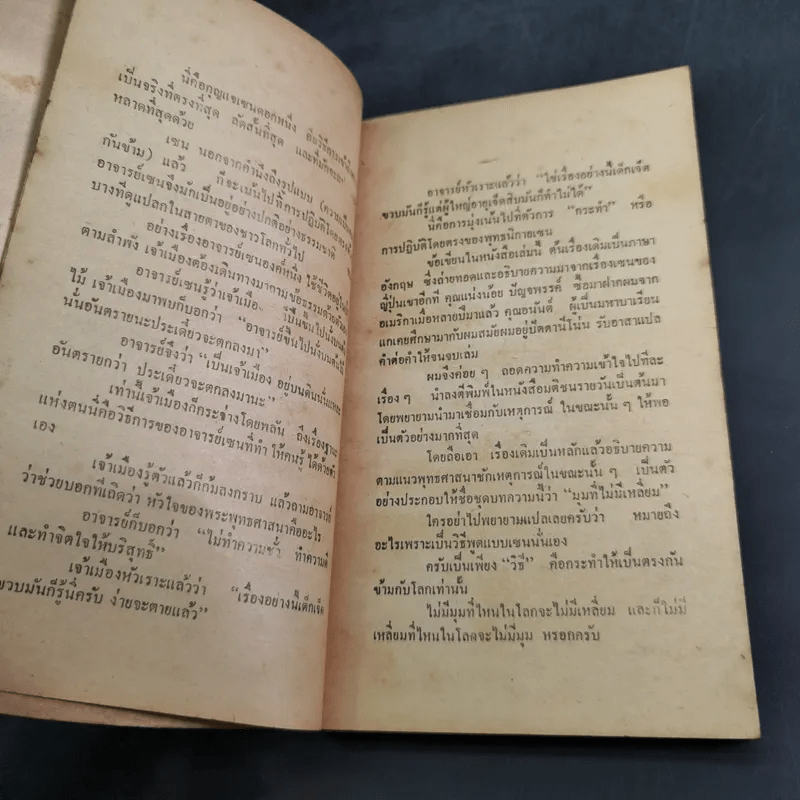 นี่คือกุญแจเซนดอกหนึ่ง
เป็นจริงที่ตรงที่สุด ลัดสั้นที่สุด และที่
หลาดที่สุดด้วย
เซน นอกจากคำนึงถึงรูปแบบ
กันข้าม) แล้ว ก็จะเน้นไปที่การปฏิบัติโดยตรง
อาจารย์เซนจึงมักเป็นอยู่อย่างปกติอย่างธรรมชาติ
บางที่ดูแปลกในสายตาของชาวโลกทั่วไป
อย่างเรื่องอาจารย์เซนองค์หนึ่ง ใช้ชีวิตอยู่
ตามลำพัง เจ้าเมืองต้องเดินทางมาถามข้อธรรมด้วยตัวเอง
อาจารย์เซนรู้ว่าเจ้าเมือง ปีนขึ้นไปนั่งบนต้น
ไม้ เจ้าเมืองมาพบก็บอกว่า “อาจารย์ขึ้นไปนั่งบนต้นไม้
นั่นอันตรายนะประเดี๋ยวจะตกลงมา”
อาจารย์จึงว่า “เป็นเจ้าเมือง อยู่บนดินนั่นแหละ
อันตรายกว่า ประเดี๋ยวจะตกลงมานะ”
เท่านี้เจ้าเมืองก็กระจ่างโดยพลัน ถึงเรื่องฐานะ
แห่งตนนี่คือวิธีการของอาจารย์เซนที่ทำให้คนรู้ ได้ด้วยตัว
เอง
เจ้าเมืองรู้ตัวแล้วก็ก้มลงกราบ แล้วถามอาจารย์
ว่าช่วยบอกทีเถิดว่า หัวใจของพระพุทธศาสนาคืออะไร
อาจารย์ก็บอกว่า “ไม่ทำความชั่ว ทำความดี
และทำจิตใจให้บริสุทธิ์”
เจ้าเมืองหัวเราะแล้วว่า “เรื่องอย่างนี้เด็กเจ็ด
ขวบมันก็รู้นี่ครับ ง่ายจะตายแล้ว”
อาจารย์หัวเราะแล้วว่า “ใช่เรื่องอย่างนี้เด็กเจ็ด
ขวบมันก็รู้แต่ผู้ใหญ่อายุเจ็ดสิบมันก็ทำไม่ได้”
นี่คือการมุ่งเน้นไปที่ตัวการ “กระทำ” หรือ
การปฏิบัติโดยตรงของพุทธนิกายเซน
ข้อเขียนในหนังสือเล่มนี้ ต้นเรื่องเดิมเป็นภาษา
อังกฤษ ซึ่งถ่ายทอดและอธิบายความมาจากเรื่องเซนของ
ญี่ปุ่นเขาอีกที คุณแน่งน้อย ปัญจพรรค์ ซื้อมาฝากผมจาก
อเมริกาเมื่อหลายปีมาแล้ว คุณอนันต์ ผู้เป็นมหาบาเรียน
แกเคยศึกษามากับผมสมัยผมอยู่ปัตตานีโน่น รับอาสาแปล
คำต่อคำให้จนจบเล่ม
ผมจึงค่อย ๆ ถอดความทำความเข้าใจไปทีละ
เรื่อง ๆ นำลงตีพิมพ์ในหนังสือมติชนรายวันเป็นต้นมา
โดยพยายามนำมาเชื่อมกับเหตุการณ์ ในขณะนั้น ๆ ให้พอ
เป็นตัวอย่างมากที่สุด
โดยถือเอา เรื่องเดิมเป็นหลักแล้วอธิบายความ
ตามแนวพุทธศาสนาชักเหตุการณ์ในขณะนั้น ๆ เป็นตัว
อย่างประกอบให้ชื่อชุดบทความนี้ว่า “มุมที่ไม่มีเหลี่ยม”
ใครอย่าไปพยายามแปลเลยครับว่า หมายถึง
อะไรเพราะเป็นวิธีพูดแบบเซนนั่นเอง
ครับเป็นเพียง “วิธี” คือกระทำให้เป็นตรงกัน
ข้ามกับโลกเท่านั้น
ไม่มีมุมที่ไหนในโลกจะไม่มีเหลี่ยม และก็ไม่มี
เหลี่ยมที่ไหนในโลกจะไม่มีมุม หรอกครับ